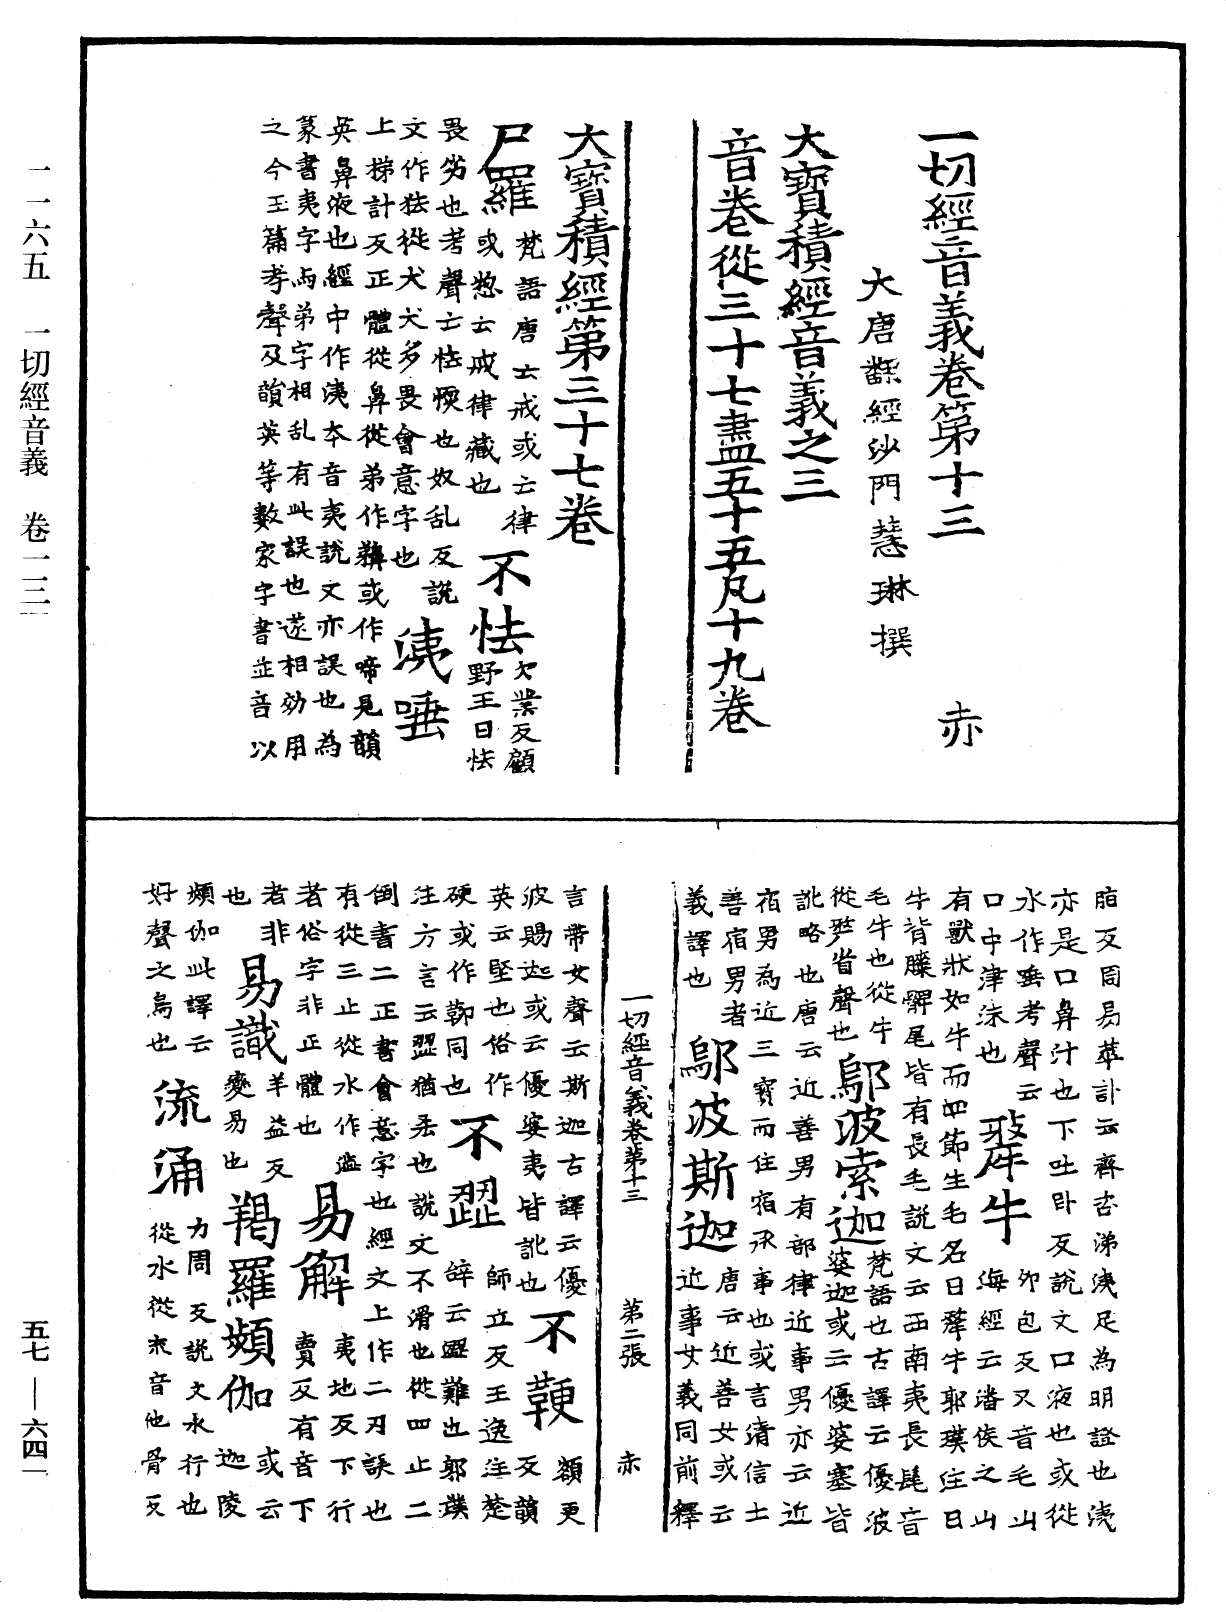 一切經音義卷第十三　赤
大唐翻經沙門慧琳撰
大寶積經音義之三
音卷從三十七盡五十五凡十九卷
大寶積經第三十七卷
尸羅 梵語唐云戒或云律
或惣云戒律藏也
不怯 欠業反顧
野王曰怯
畏劣也考聲云怯愞也奴乱反說
文作㹤從犬犬多畏會意字也
洟唾
上梯計反正體從鼻從弟作䶏或作啼見韻
英鼻液也經中作洟本音夷說文亦誤也為
篆書夷字与弟字相乱有此誤也遂相効用
之今玉篇考聲及韻英等數家字書並音以
脂反周易萃卦云齊咨涕洟足為明證也洟
亦是口鼻汁也下吐臥反說文口液也或從
水作涶考聲云
口中津沫也
犛牛 卯包反又音毛山
海經云潘侯之山
有獸狀如牛而四節生毛名曰犛牛郭璞注曰
牛背膝髀尾皆有長毛說文云西南夷長髦音
毛牛也從牛
從𠩺省聲也
鄔波索迦 梵語也古譯云優波
婆迦或云優婆塞皆
訛略也唐云近善男有部律近事男亦云近
宿男為近三寶而住宿承事也或言清信士
善宿男者
義譯也
鄔波斯迦 唐云近善女或云
近事女義同前釋
一切經音義卷第十三　第二張　赤
言帶女聲云斯迦古譯云優
波賜迦或云優婆夷皆訛也
不鞕 額更
反韻
英云堅也俗作
硬或作䩕同也
不澀 師立反王逸注楚
辭云澀難也郭璞
注方言云澀猶㖻也說文不滑也從四止二
倒書二正書會意字也經文上作二刃誤也
有從三止從水作澁
者俗字非正體也
易解 夷地反下行
賣反有音下
者非
也
易識 羊益反
變易也
羯羅頻伽 或云
迦陵
頻伽此譯云
好聲之鳥也
流涌 力周反說文水行也
從水從㐬音他骨反
一一六五　一切經音義　卷一三
五七—六四一